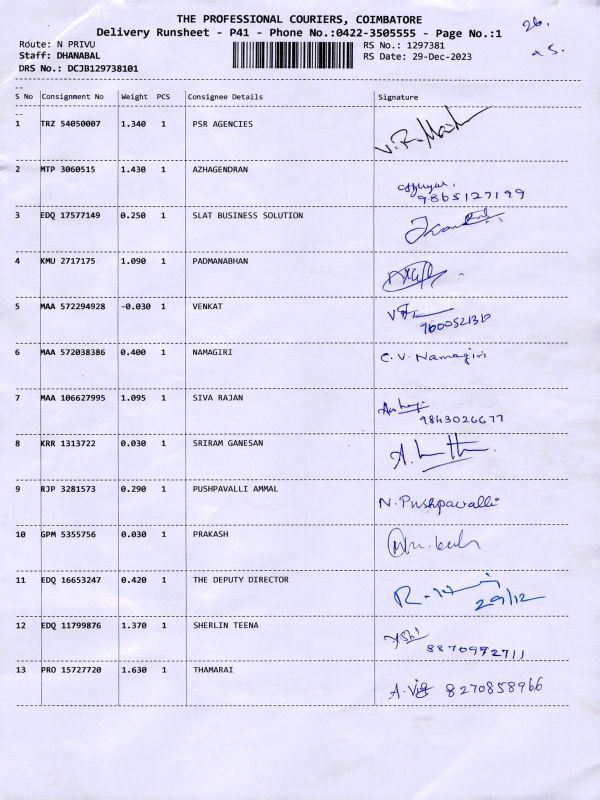 THE PROFESSIONAL COURIERS, COIMBATORE
Delivery Runsheet - P41 - Phone No.:0422-3505555 - Page No.:1
26.
Route: N PRIVU
RS No.: 1297381
Staff: DHANABAL
RS Date: 29-Dec-2023
DRS No.: DCJB129738101
S No Consignment No Weight PCS Consignee Details Signature
1 TRZ 54050007 1.340 1 PSR AGENCIES
2 MTP 3060515 1.430 1 AZHAGENDRAN
9865127199
3 EDQ 17577149 0.250 1 SLAT BUSINESS SOLUTION
4 KMU 2717175 1.090 1 PADMANABHAN
5 MAA 572294928 -0.030 1 VENKAT
6 MAA 572038386 0.400 1 NAMAGIRI C.V. Namagiri
7 MAA 106627995 1.095 1 SIVA RAJAN
9843026677
8 KRR 1313722 0.030 1 SRIRAM GANESAN
9 RJP 3281573 0.290 1 PUSHPAVALLI AMMAL N. Pushpavalli
10 GPM 5355756 0.030 1 PRAKASH
11 EDQ 16653247 0.420 1 THE DEPUTY DIRECTOR
29/12
12 EDQ 11799876 1.370 1 SHERLIN TEENA
8870992711
13 PRO 15727720 1.630 1 THAMARAI
8270858966